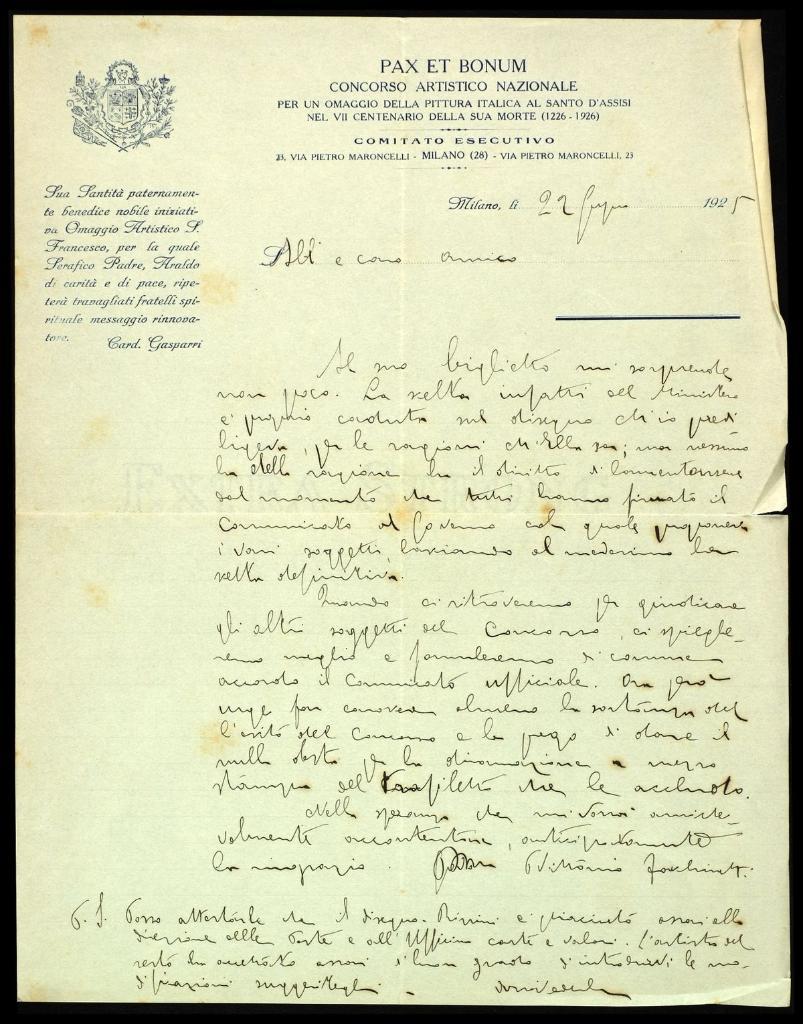 PAX ET BONUM
CONCORSO ARTISTICO NAZIONALE
PER UN OMAGGIO DELLA PITTURA ITALICA AL SANTO D'ASSISI
NEL VII CENTENARIO DELLA SUA MORTE (1226 - 1926)
COMITATO ESECUTIVO
23, VIA PIETRO MARONCELLI - MILANO (28) - VIA PIETRO MARONCELLI, 23
Sua Santità paternamen-
te benedice nobile iniziati-
va Omaggio Artistico S.
Francesco, per la quale
Serafico Padre, Araldo
di carità e di pace, ripe-
terà travagliati fratelli spi-
rituale messaggio rinnova-
tore.
Card. Gasparri
Milano, li 22 1925
e caro amico
Il suo biglietto mi sorprende
non poco. La scelta infatti del Ministero
è proprio caduta sul disegno ch'io predi
ligeva, per le ragioni ch'Ella sa; ma nessuno
ha della ragione ha il diritto di lamentarsene
dal momento che tutti hanno firmato il
Comunicato al Governo col quale proponeva
i vari soggetti, lasciando al medesimo la
scelta definitiva.
Quando ci ritroveremo per giudicare
gli altri soggetti del Concorso, ci spieghe-
remo meglio e formuleremo di comune
accordo il Comunicato ufficiale. Ora però
urge far conoscere almeno la sostanza del
l'esito del Concorso e la prego di dare il
nulla osta per la diramazione a mezzo
stampa del trafiletto che le accludo.
Nella speranza che mi vorrà amiche-
volmente accontentare, anticipatamente
la ringrazio. Vittorino Facchinetti
P. S. Posso attestarle che il disegno Rizzini è piaciuto assai alla
direzione delle Poste e all'Ufficio carte e valori. L'artista del
resto ha accettato assai di buon grado d'introdurvi le mo-
dificazioni suggeritegli.